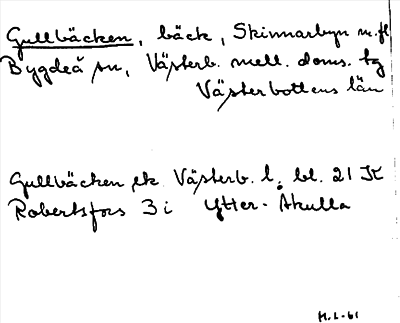 Gullbäcken, bäck, Skinnarbyn m.fl
Bygdeå sn, Västerb. mell. doms. tg
Västerbottens län
Gullbäcken ek. Västerb. l. bl. 21 K
Robertsfors 3 i Ytter-Åkulla
H.L-61